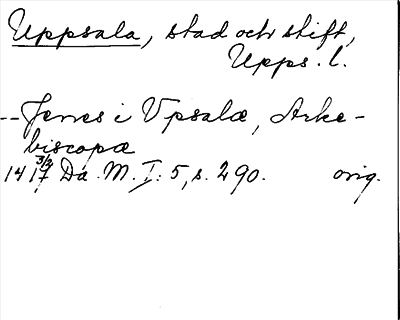 Uppsala, stad och stift,
Upps. l.
-- Jenes i Vpsalæ, Arke-
biscopæ
1417 3/2 Da. M. I: 5, s. 290. orig.